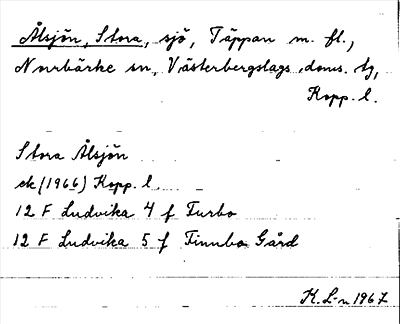 Ålsjön, Stora, sjö, Täppan m. fl.,
Norrbärke sn, Västerbergslags doms. tg,
Kopp. l.
Stora Ålsjön
ek (1966) Kopp. l.
12 F Ludvika 4 f Turbo
12 F Ludvika 5 f Finnbo Gård
K. L-n 1967